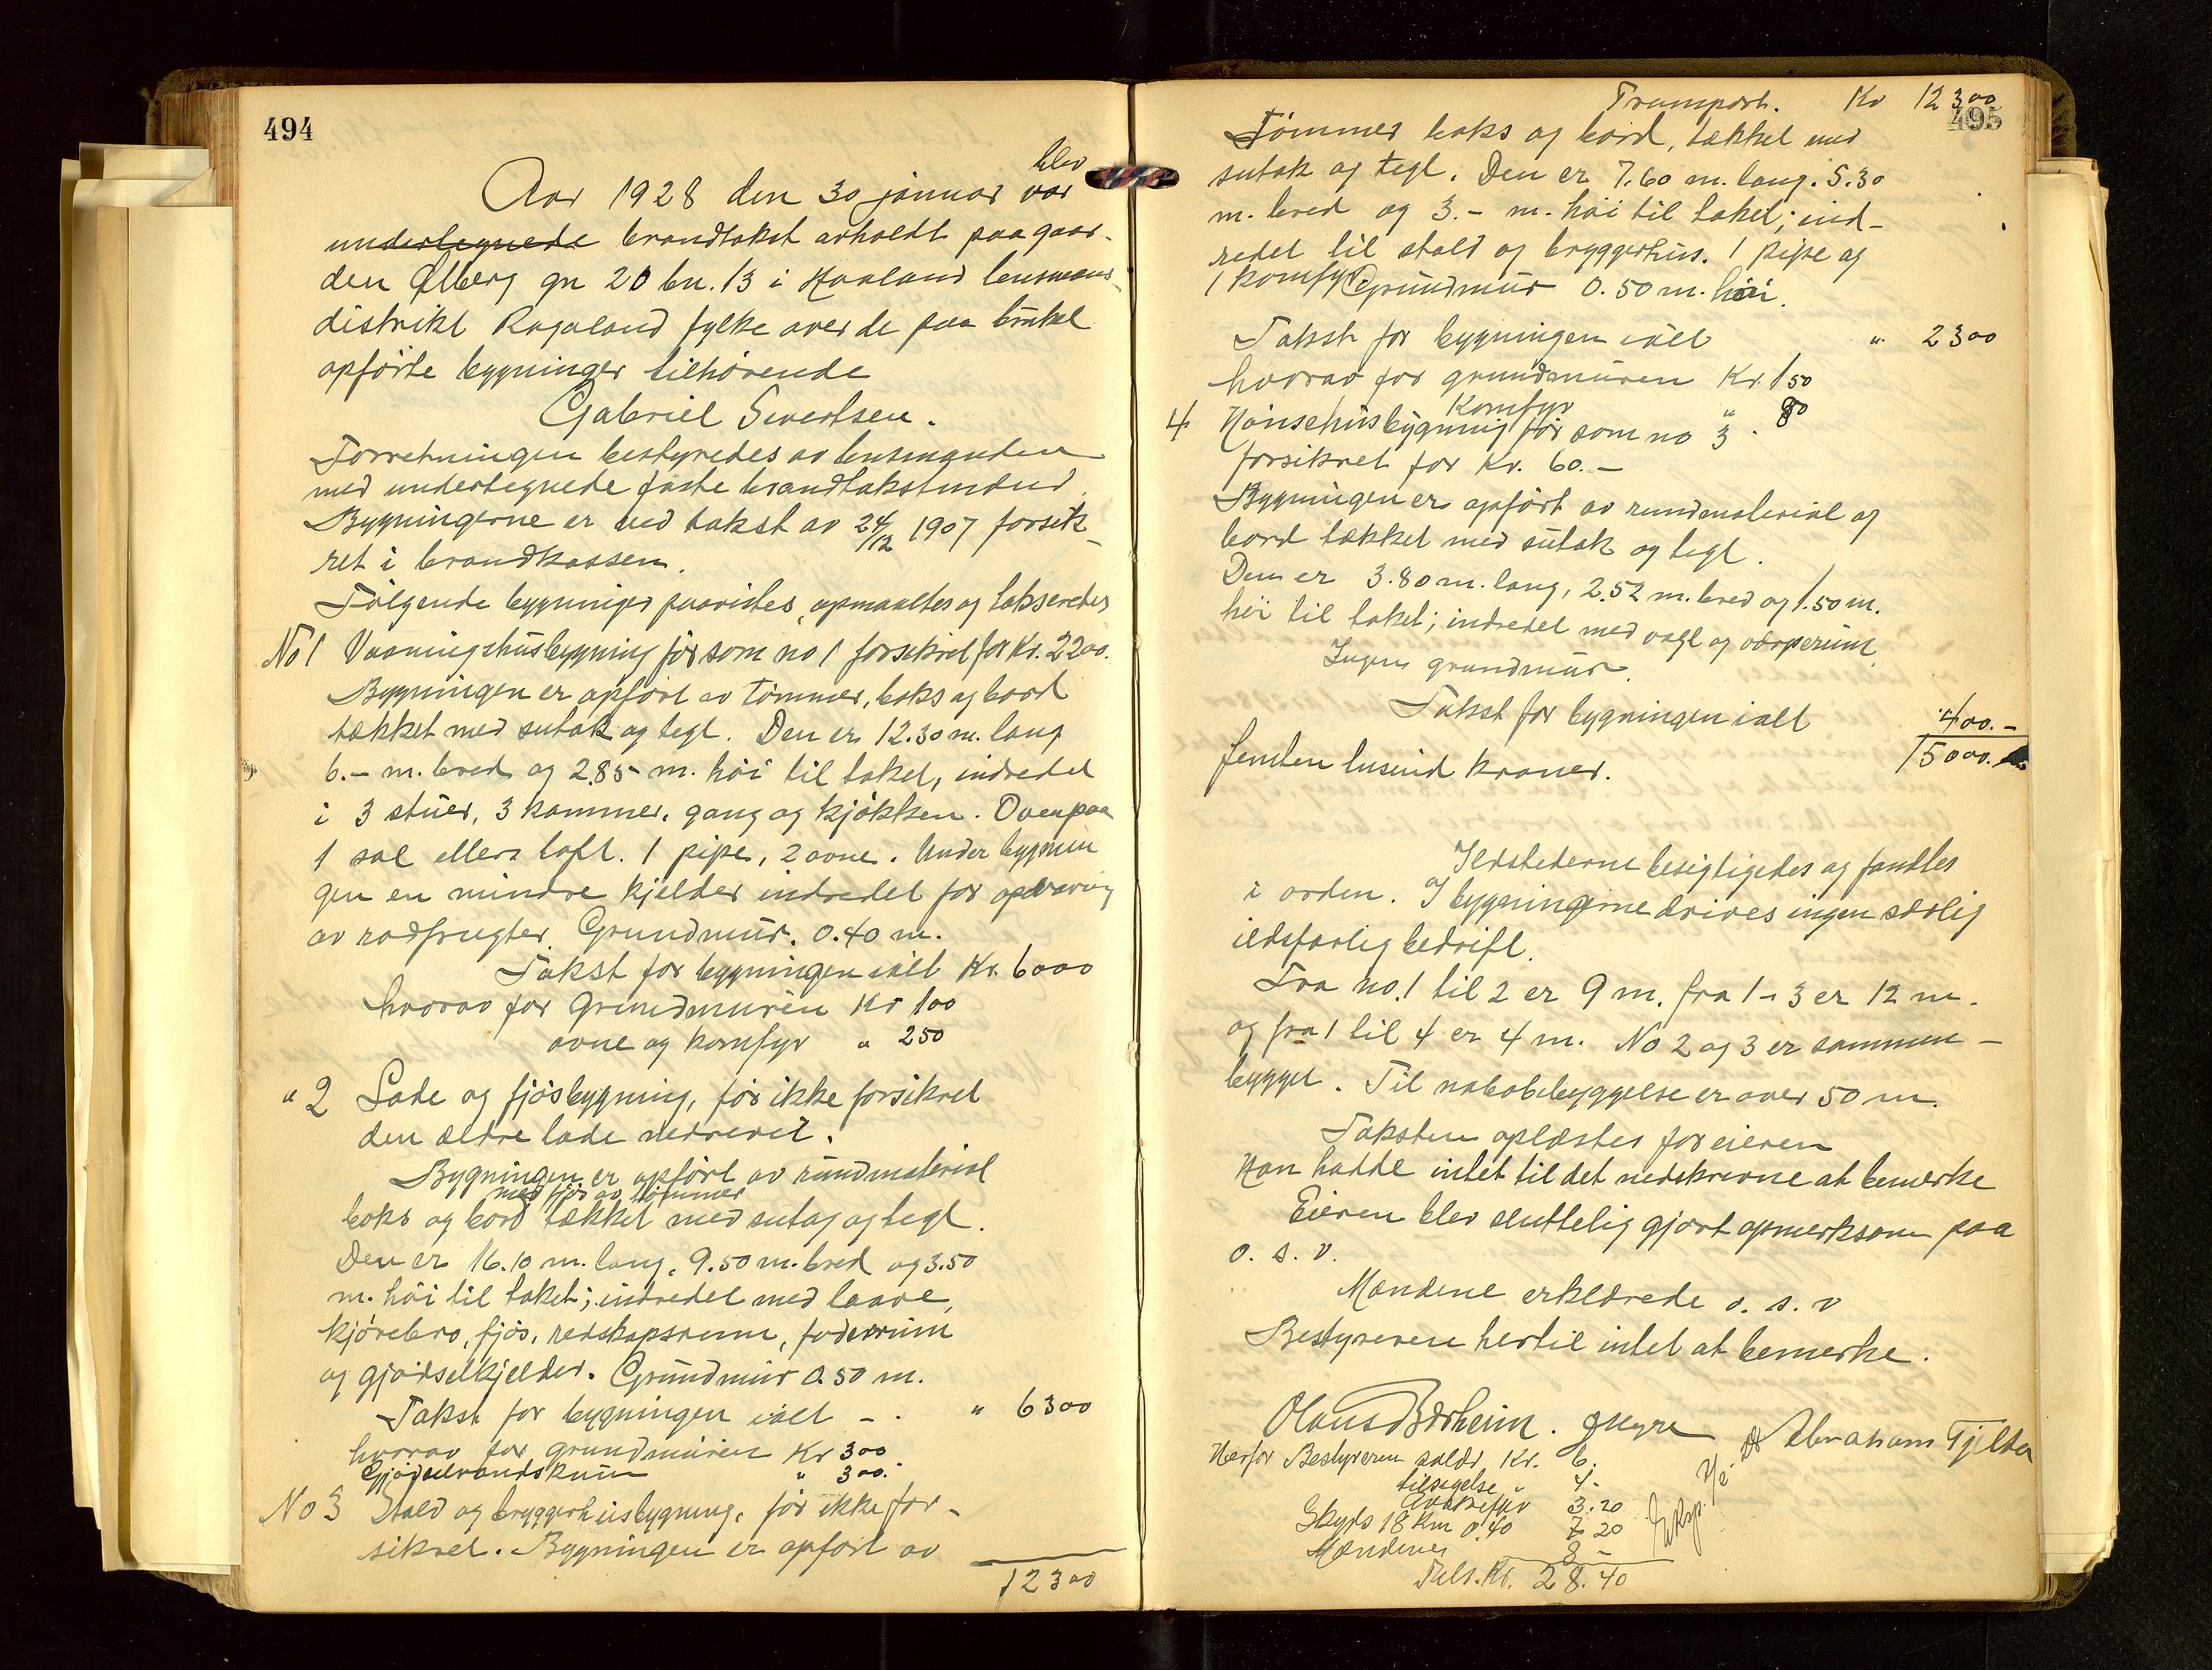 494
Aar 1928 den 30 januar var blev
undertegnede brandtakst avholdt paa gaar-
den Ølberg gn 20 bn. 13 i Haaland lensmans-
distrikt Rogaland fylke over de paa bruket
opførte bygninger tilhørende
Gabriel Sivertsen.
Forretningen bestyredes av lensmanden
med undertegnede faste brandtakstmænd.
Bygningerne er ved takst av 24/12 1907 forsik-
ret i brandkassen.
Følgende bygninger paavistes, opmaaltes og takseredes
No 1 Vaaningshusbygning før som no 1 forsikret for Kr. 2200.
Bygningen er opført av tømmer, boks og bord
tækket med sutak og tegl. Den er 12.30 m. lang
6.- m. bred og 2.85 m. høi til taket, indredet
i 3 stuer, 3 kammer, gang og kjøkken. Ovenpaa
1 sal ellers loft. 1 pipe, 2 ovne. Under bygnin
gen en mindre kjelder indredet for opbevaring
av rodfrugter. Grundmur. 0.40 m.
Takst for bygningen ialt Kr. 6000
hvorav for grundmuren Kr 100
ovne og komfyr " 250
" 2 Lade og fjøsbygning, før ikke forsikret
den ældre lade nedrevet.
Bygningen er opført av rundmaterial
med fjøs av tømmer
boks og bord tækket med sutag og tegl.
Den er 16.10 m. lang, 9.50 m. bred og 3.50
m. høi til taket; indredet med laave,
kjørebro, fjøs, redskapsrum, foderrum
og gjødselkjelder. Grundmur 0.50 m.
Takst for bygningen ialt - . " 6300
hvorav for grundmuren Kr 300
Gjødselvandskum " 300.-
No 3 Stald og bryggerhusbygning, før ikke for-
sikret. Bygningen er opført av
12300
Transport. Kr 12300
495
Tømmer boks og bord, tækket med
sutak og tegl. Den er 7.60 m. lang. 5.30
m. bred og 3.- m. høi til taket; ind-
redet til stald og bryggerhus. 1 pipe og
1 komfyr. Grundmur 0.50 m. høi.
Takst for bygningen ialt " 2300
hvorav for grundmuren Kr. 150
Komfyr " 80
4 Hønsehusbygning før som no 3
forsikret for Kr. 60.-
Bygningen er opført av rundmaterial og
bord tækket med sutak og tegl.
Den er 3.80 m. lang, 2.52 m. bred og 1.50 m.
høi til taket; indredet med vagl og værperum.
Ingen grundmur.
Takst for bygningen ialt 400.-
femten tusind kroner. 15000.-
Ildstederne besigtigedes og fandtes
i orden. I bygningerne drives ingen særlig
ildsfarlig bedrift.
Fra no. 1 til 2 er 9 m. fra 1 - 3 er 12 m.
og fra 1 til 4 er 4 m. No 2 og 3 er sammen-
bygget. Til nabobebyggelse er over 50 m.
Taksten oplæstes for eieren
Han hadde intet til det nedskrevne at bemerke
Eieren blev sluttelig gjort opmerksom paa
o. s. v.
Mændene erklærede o. s. v
Bestyreren hertil intet at bemerke.
Olaus Bærheim. Abraham Tjelta
Herfor Bestyreren salær Kr. 6.
tilsigelse " 4.-
3.20
Skyds 18 Km 0.40 7.20
Mændenes 8 -
Tils. Kr. 28.40
Eksp.